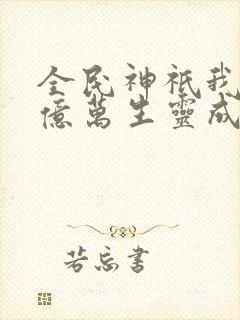 全民神祇我
億萬生靈成
若忘書